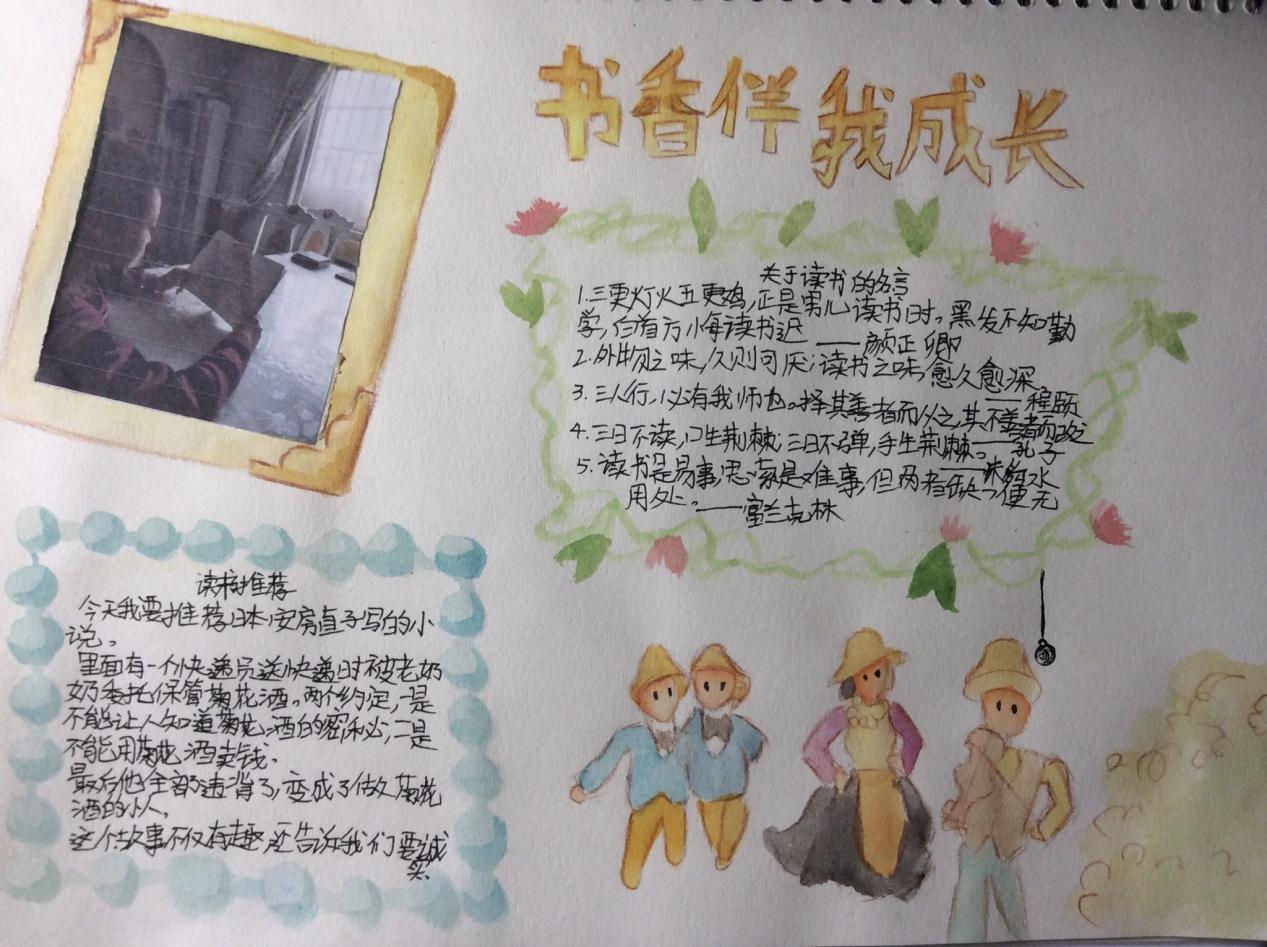 书香伴我成长
关于读书的名言
1.三更灯火五更鸡,正是男儿读书时。黑发不知勤
学,白首方悔读书迟——颜正卿
2.外物之味,久则可厌;读书之味,愈久愈深
——程颐
3.三人行,必有我师也。择其善者而从之,其不善者而改
——孔子
4.三日不读,口生荆棘;三日不弹,手生荆棘。
5.读书是易事,思索是难事,但两者缺一便无
用处。——富兰克林
读书推荐
今天我要推荐日本安房直子写的小
说。
里面有一个快递员送快递时被老奶
奶委托保管菊花酒。两个约定,一是
不能让人知道菊花酒的密秘,二是
不能用菊花酒卖钱。
最后他全部违背了,变成了做菊花
酒的小人。
这个故事不仅有趣,还告诉我们要诚
实。